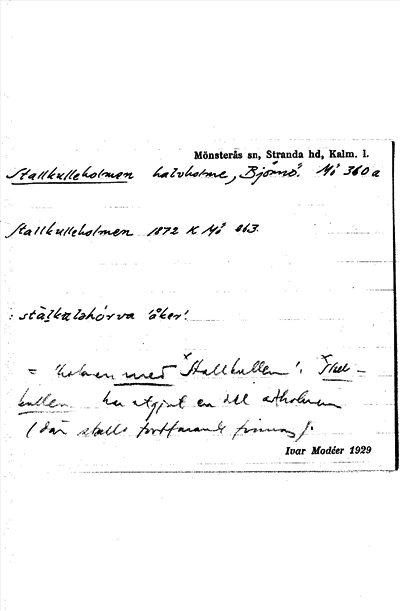 Mönsterås sn, Stranda hd, Kalm. l.
Stallkulleholmen halvholme, Björnö. Mö 360 a
Stallkulleholmen 1872 K Mö 863.
: stälkaləhórva 'åker'.
= 'holmen med *Stallkullen'. *Stall-
kullen har utgjort en del av holmen
(där stalls fortfarande finnas).
Ivar Modéer 1929